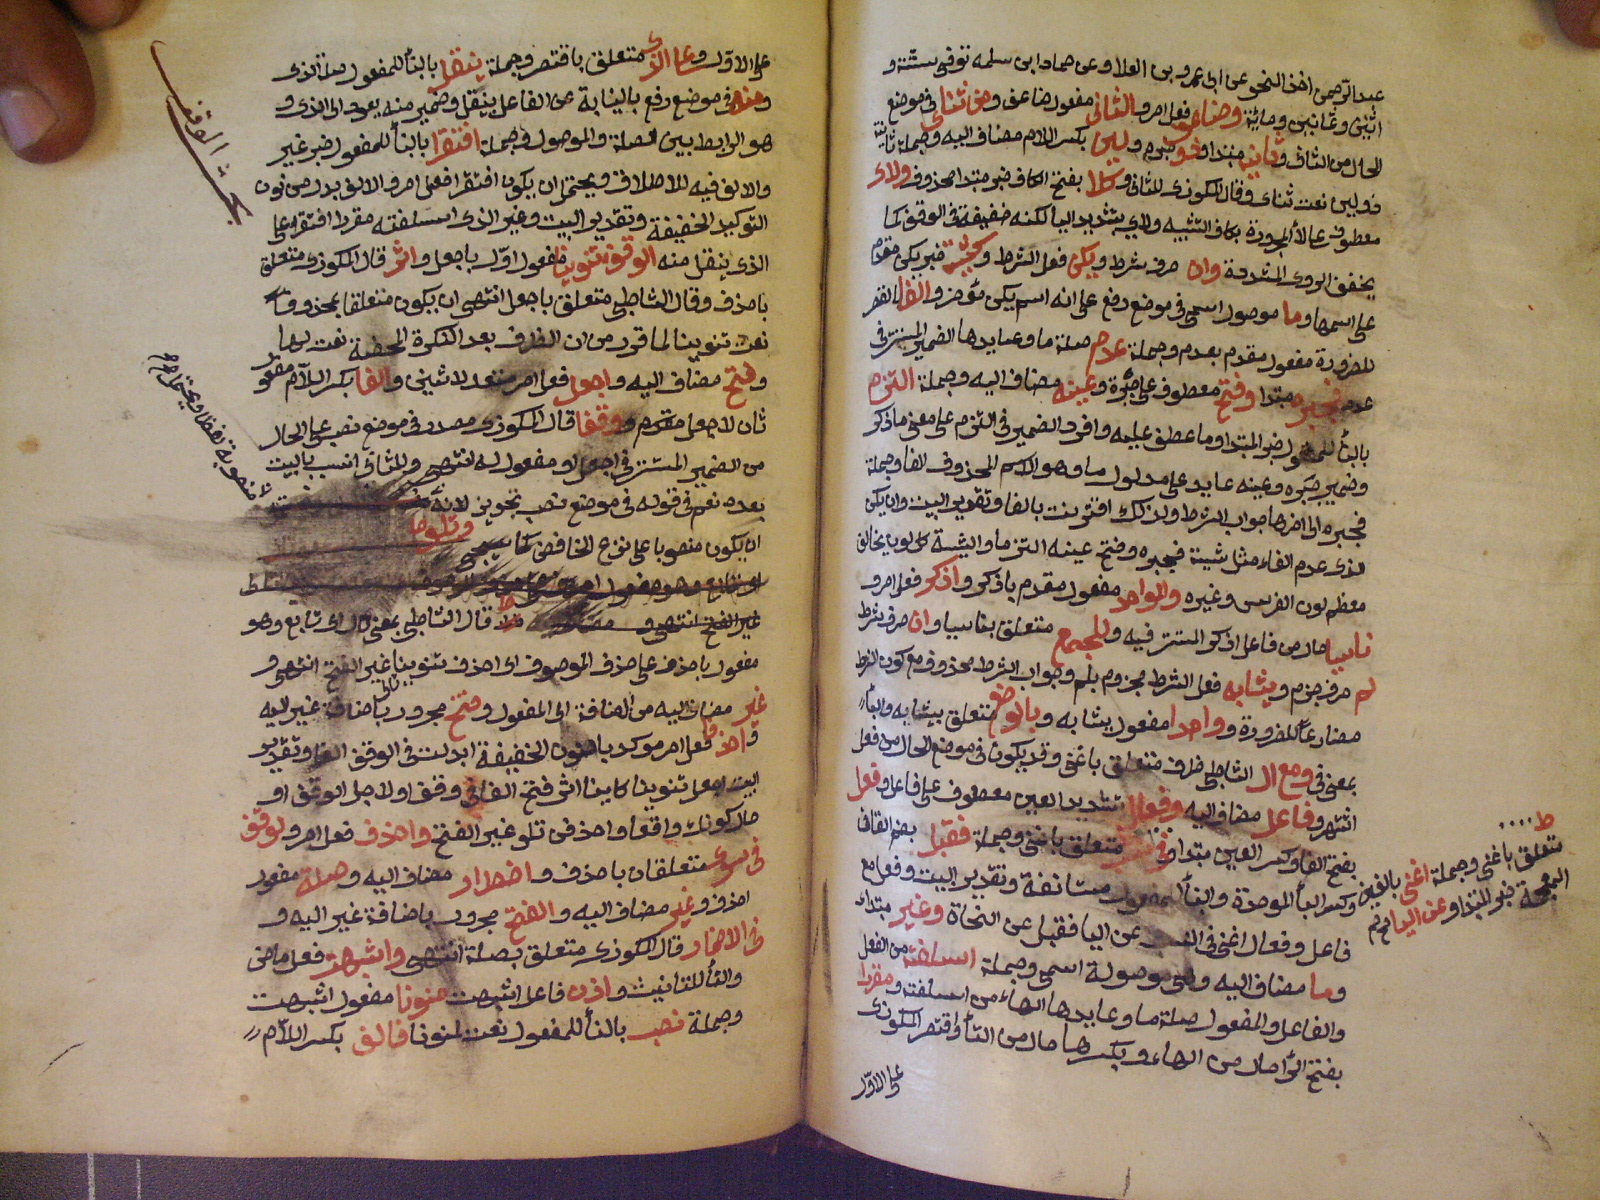 عبد الرحمن اخذ النحو عن ابى عمرو بن العلا وعن حماد ابن سلمه توفى سنة
اثنين وثمانين ومائة وضاعف فعل امر والثانى مفعول ضاعف ومن ثنائى فى موضع
الحال من الثانى وثانيه مبتدا وذو خبره ولين بكسر اللام مضاف اليه وجملة ثانيه
ذو لين نعت ثنائى وقال المكودى للثانى وكلا بفتح الكاف خبر مبتدا محذوف ولائى
معطوف على لا المجرورة بكاف التشبيه ولائى بتشديد اليا لكنه خفيفة فى الوقف كما
يخفف الروى المشدد وان حرف شرط ويكن فعل الشرط وكشية خبر يكن مقدم
على اسمها وما موصول اسمى فى موضع رفع على انه اسم يكن مؤخر والفا بالقصر
للضرورة مفعول مقدم بعدم وجملة عدم صلة ما وعايدها الضمير المستتر فى
عدم فجبره مبتدا وفتح معطوف على جبره وعينه مضاف اليه وجملة التزم
بالبنا للمفعول خبر المبتدا وما عطف عليه وافرد الضمير فى التزم على معنى ما ذكر
وضمير جبره وعينه عايد على مدلول ما وهو الاسم المحذوف الفا وجملة
فجبره الى اخرها جواب الشرط ولذلك اقترنت بالفا وتقدير البيت وان يكن
الذى عدم الفاء مثل شية فجبره وفتح عينه التزما والشية كل لون يخالف
معظم لون الفرس وغيره والواحد مفعول مقدم باذكر واذكر فعل امر و
ناسبا حال من فاعل اذكر المستتر فيه وللجمع متعلق بناسبا وان حرف شرط
لم حرف جزم ويشابه فعل الشرط مجزوم بلم وجواب الشرط محذوف مع كون الشرط
مضارعا للضرورة وواحدا مفعول يشابه وبالوضع متعلق بيشابه والبا
بمعنى فى ومع ال الشاطبى ظرف متعلق باغنى وقد يكون فى موضع الحال من فعل
انتهى وفاعل مضاف اليه وفعال بتشديد العين معطوف على فاعل وفعل
بفتح الفا وكسر العين مبتدا وفى نسب متعلق باغنى وجملة فقبل بضم القاف
وكسر البا الموحدة والبنا للمفعول مستانفة وتقدير البيت وفعل مع
فاعل وفعال اغنى فى النسب عن اليا فقبل عن النحاة وغير مبتداء
وما مضاف اليه وهى موصولة اسمى وجملة اسلفته من الفعل
والفاعل والمفعول صلة ما وعايدها الهاء من اسلفته ومقررا
بفتح الرا حال من الهاء وبكسرها حال من التا واقتصر المكودى
على الاول
ط
متعلق باغنى وجملة اغنى بالغين
المعجمة خبر المبتدا وعن اليا
على الاول وعلى الذى متعلق باقتصر وجملة ينقل بالبنا للمفعول صلة الذى
ومنه فى موضع رفع بالنيابة عن الفاعل ينقل وضمير منه يعود الى الذى و
هو الرابط بين الصلة والموصول وجملة اقتصرا بالبنا للمفعول خبر غير
والالف فيه للاطلاق ويحتمل ان يكون اقتصرا فعل امر والالف بدل من نون
التوكيد الخفيفة وتقدير البيت وغير الذى اسلفته مقررا اقتصر على
الذى ينقل منه الوقف تنوينا مفعول اول باجعل واثر قال المكودى متعلق
باحذف وقال الشاطبى متعلق باجعل انتهى ان يكون متعلقا بمحذوف
نعت تنوينا لما قرر من ان الظرف بعد النكرة المحضة نعت لها
وفتح مضاف اليه واجعل فعل امر متعد لاثنين والفا بكسر اللام مفعول
ثان لاجعل مقدم ووقفا قال المكودى مصدر فى موضع نصب على الحال
من الضمير المستتر فى اجعل او مفعول له انتهى وللثانى انسب بالبيت
بعده نعم فى قوله فى موضع نصب تجويز لانه
ان يكون منصوبا على نزع الخافض كما سيجى وتلو ما
غير الفتح انتهى قال الشاطبى بمعنى تال اى تابع وهو
مفعول باحذف على حذف الموصوف اى احذف تنوينا غير الفتح انتهى و
غير مضاف اليه من اضافة الى المفعول وفتح مجرور باضافة غير اليه
واحذفا فعل امر موكد بالنون الخفيفة ابدلت فى الوقف الفا وتقدير
البيت اجعل تنوينا كاينا اثر فتح الفا فى وقف او لاجل الوقف او
حال كونك واقفا واحذفن تلو غير الفتح واحذف فعل امر ولوقف
فى سوى متعلقان باحذف واضطرار مضاف اليه وصلة مفعول
احذف وغير مضاف اليه والفتح مجرور باضافة غير اليه و
فى الاضمار قال المكودى متعلق بصلة انتهى واشبهت فعل ماض
والتا للتانيث واذن فاعل اشبهت منونا مفعول اشبهت
وجملة نصب بالبنا للمفعول نعت لمنونا فالف بكسر اللام
بحث الوقف